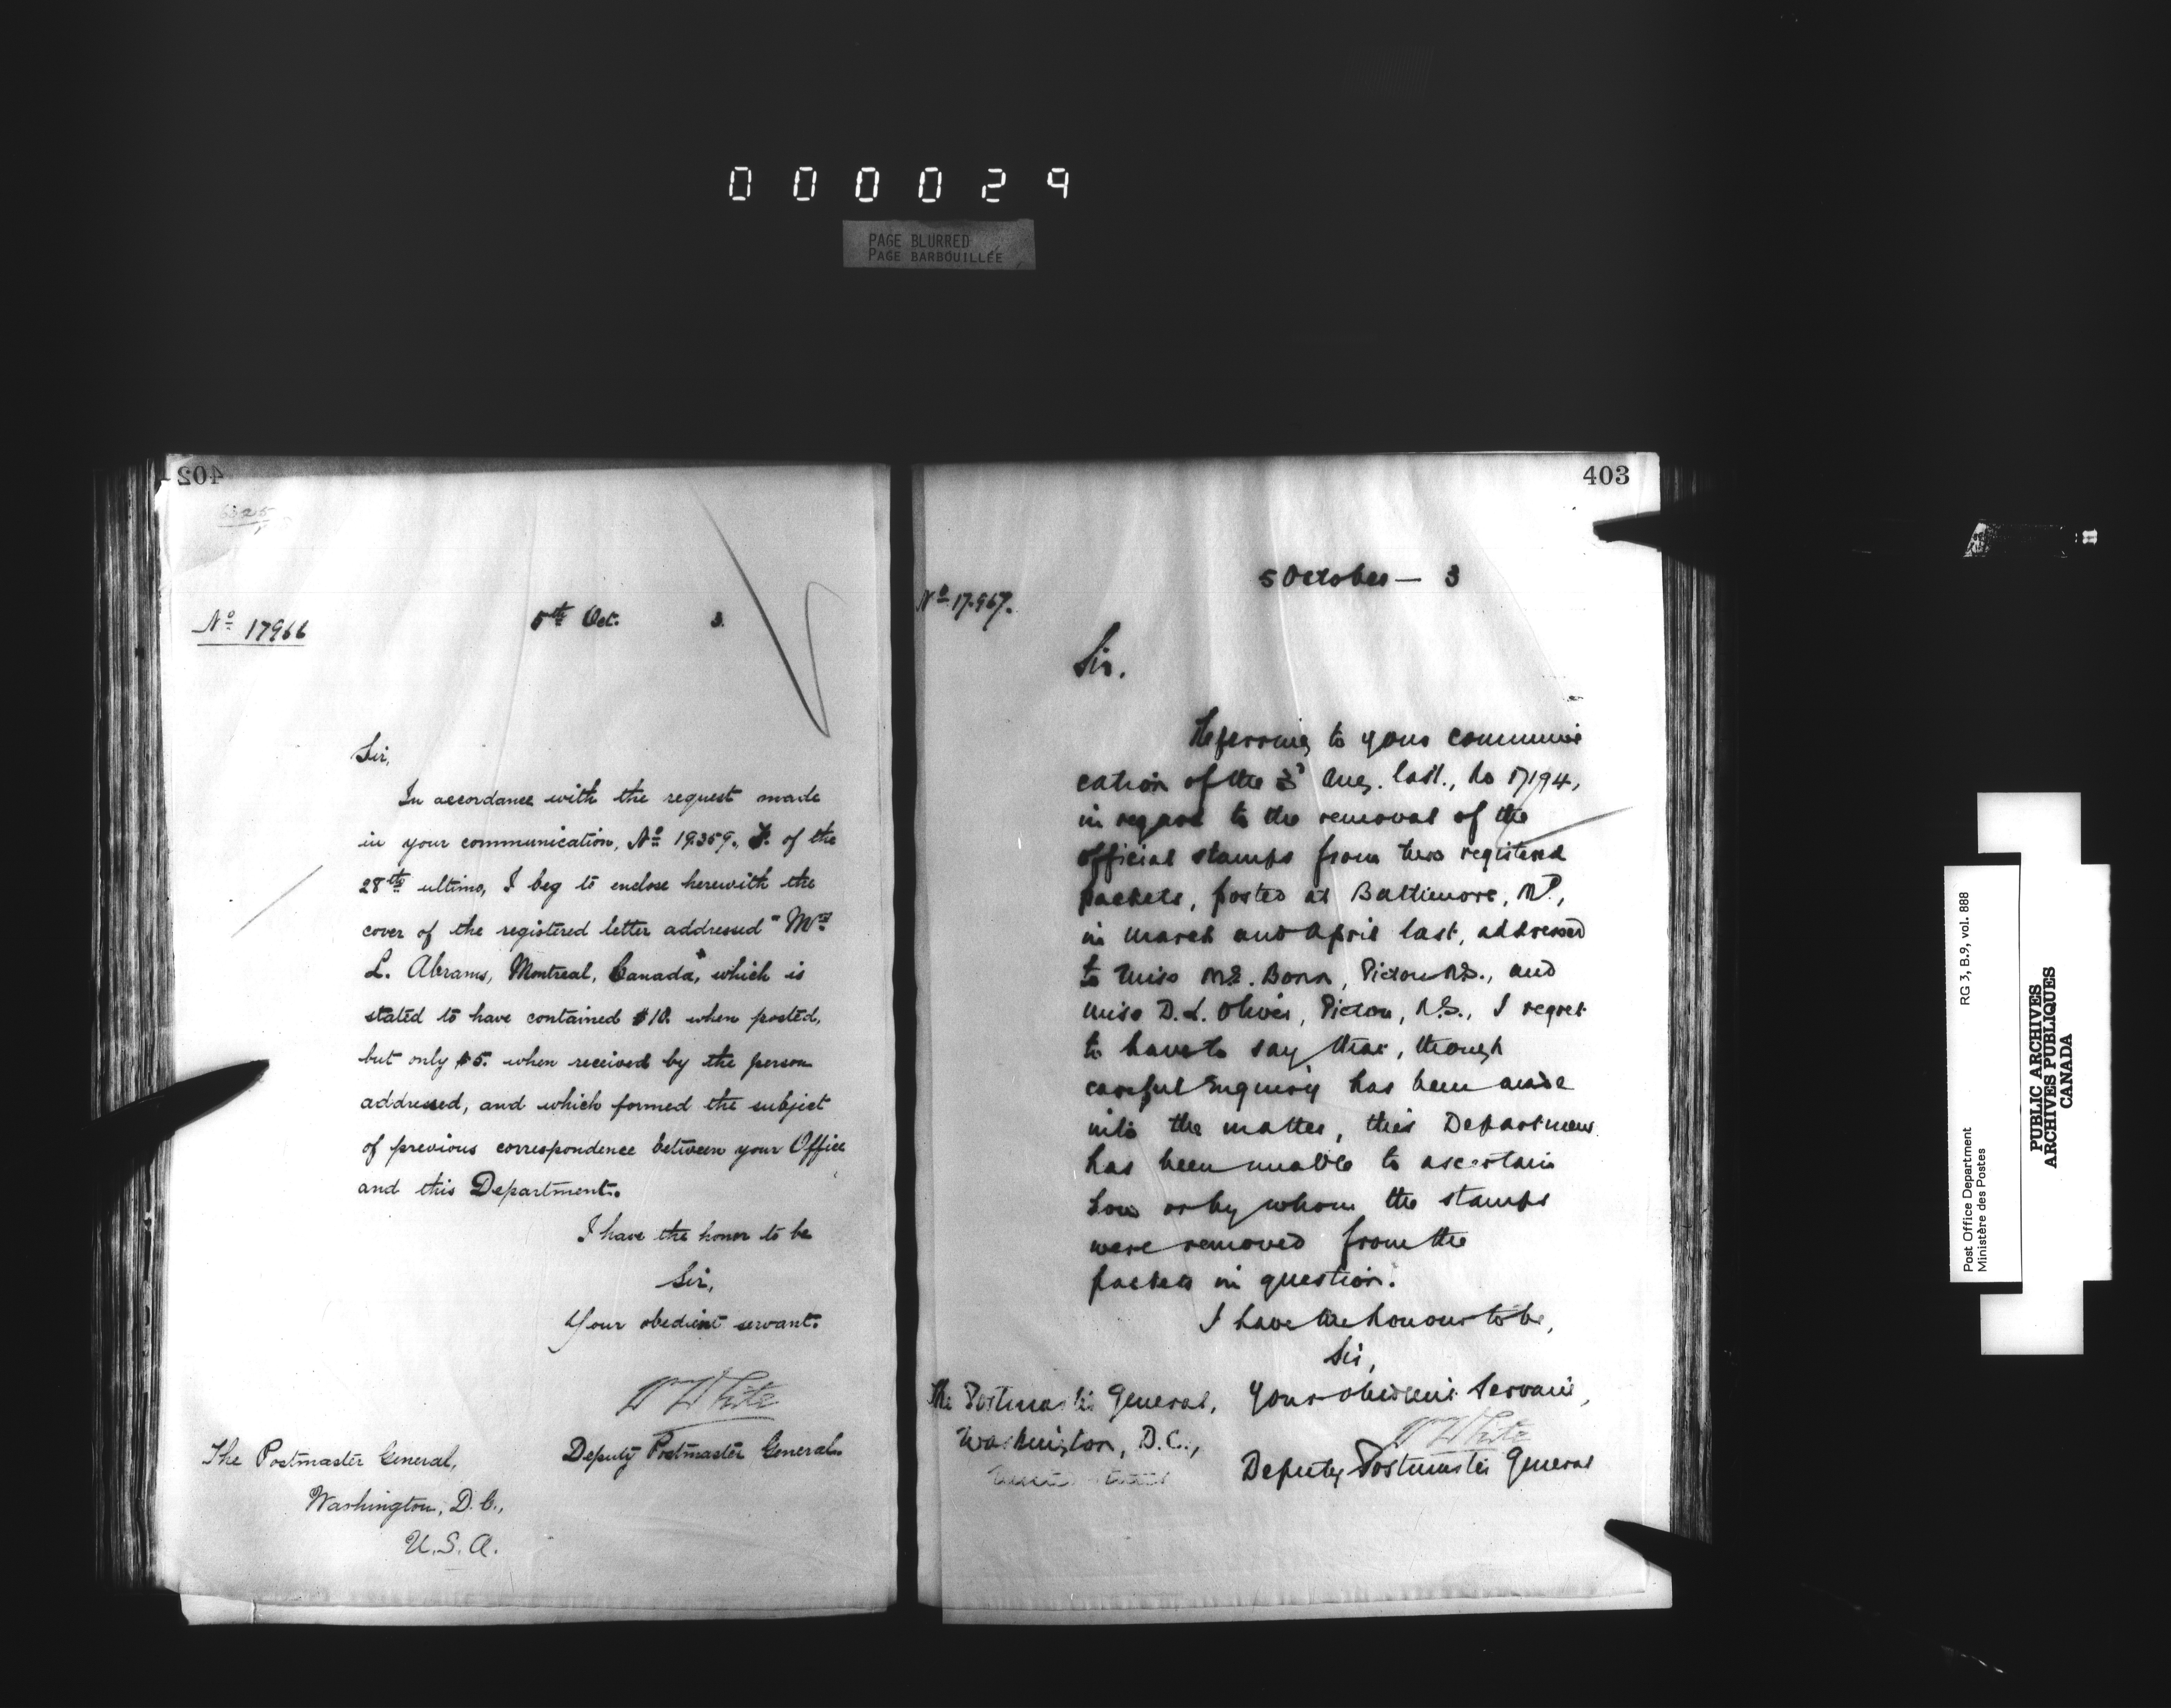 000029
PAGE BLURRED
PAGE BARBOUILLÉE
402
6325
No 17966
5th Oct. 3.
Sir,
In accordance with the request made
in your communication, No 19359, F. of the
28th ultimo, I beg to enclose herewith the
cover of the registered letter addressed "Mrs
L. Abrams, Montreal, Canada," which is
stated to have contained $10. when posted,
but only $5. when received by the person
addressed, and which formed the subject
of previous correspondence between your Office
and this Department.
I have the honor to be
Sir,
Your obedient servant.
W White
Deputy Postmaster General.
The Postmaster General,
Washington, D.C.,
U.S.A.
403
5 October — 3
No 17.967.
Sir.
Referring to your communi
cation of the Aug. last., No 17194,
in regard to the removal of the
official stamps from two registered
packets, posted at Baltimore, Md,
in March and April last, addressed
to Miss Born, Pictou N.S., and
Miss D.L. Oliver, Pictou, N.S., I regret
to have to say that, though
careful enquiry has been made
into the matter, this Department
has been unable to ascertain
how or by whom the stamps
were removed from the
packets in question.
I have the honour to be,
Sir,
Your obedient servant,
W White
Deputy Postmaster General
The Postmaster General,
Washington, D.C.,
United States
Post Office Department
Ministère des Postes
RG 3, B.9, vol. 888
PUBLIC ARCHIVES
ARCHIVES PUBLIQUES
CANADA